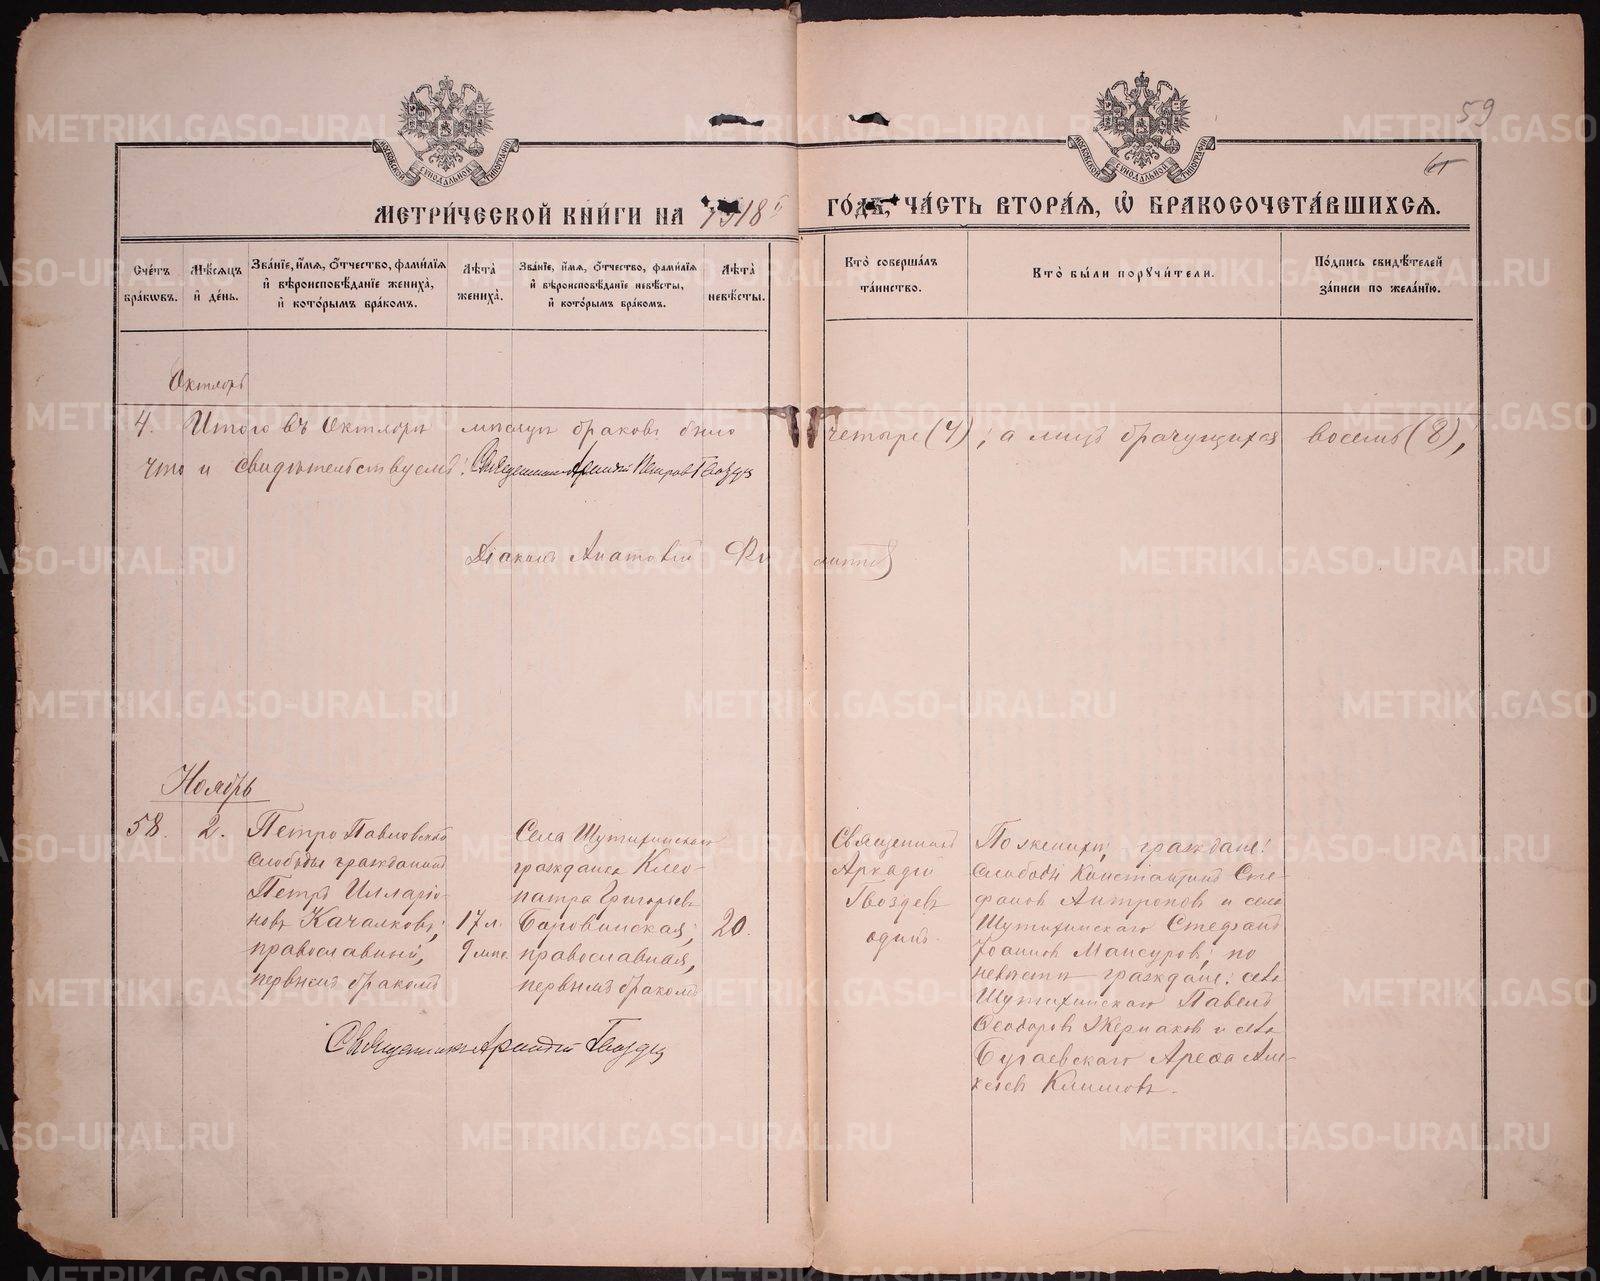 59
МОСКОВСКОЙ СУНОДАЛЬНОЙ ТИПОГРАФІИ
МОСКОВСКОЙ СУНОДАЛЬНОЙ ТИПОГРАФІИ
МЕТРИ́ЧЕСКОЙ КНИ́ГИ НА 1918 ГО́ДЪ, ЧА́СТЬ ВТОРА́Я, Ѽ БРАКОСОЧЕТА́ВШИХСЯ.
Сче́тъ бра́кѡвъ.
Мѣ́сяцъ и҆ де́нь.
Зва́нїе, и҆́мя, ѻ҆́тчество, фами́лїя и҆ вѣроисповѣ́данїе жениха̀, и҆ кото́рымъ бра́комъ.
Лѣ́та жениха̀.
Зва́нїе, и҆́мя, ѻ҆́тчество, фами́лїя и҆ вѣроисповѣ́данїе невѣ́сты, и҆ кото́рымъ бра́комъ.
Лѣ́та невѣ́сты.
Кто̀ соверша́лъ та́инство.
Кто̀ бы́ли порꙋчи́тели.
По́дпись свидѣ́телей за́писи по жела́нїю.
Октябрь
4. Итого въ Октябрѣ мѣсяцѣ браковъ было четыре (4); а лицъ брачущихся восемь (8),
что и свидѣтельствуемъ: Священникъ Аркадій Петровъ Гвоздевъ
Діаконъ Анатолій
Ноябрь
58.
2.
Петро Павловской
слободы гражданинъ
Петръ Илларіо-
новъ Качалковъ,
православный,
первымъ бракомъ
17 л.
9 мѣс.
Села Шутихинскаго
гражданка Клео-
патра Григорьева
Боровинская,
православная,
первымъ бракомъ
20.
Священникъ
Аркадій
Гвоздевъ
одинъ.
По женихѣ, граждане:
слободы Константинъ Сте-
фановъ Антроповъ и села
Шутихинскаго Стефанъ
Іоанновъ Мансуровъ; по
невѣстѣ граждане: села
Шутихинскаго Павелъ
Ѳеодоровъ Жермаковъ и села
Бугаевскаго Арефа Али-
Климовъ.
Священникъ Аркадій Гвоздевъ
METRIKI.GASO-URAL.RU